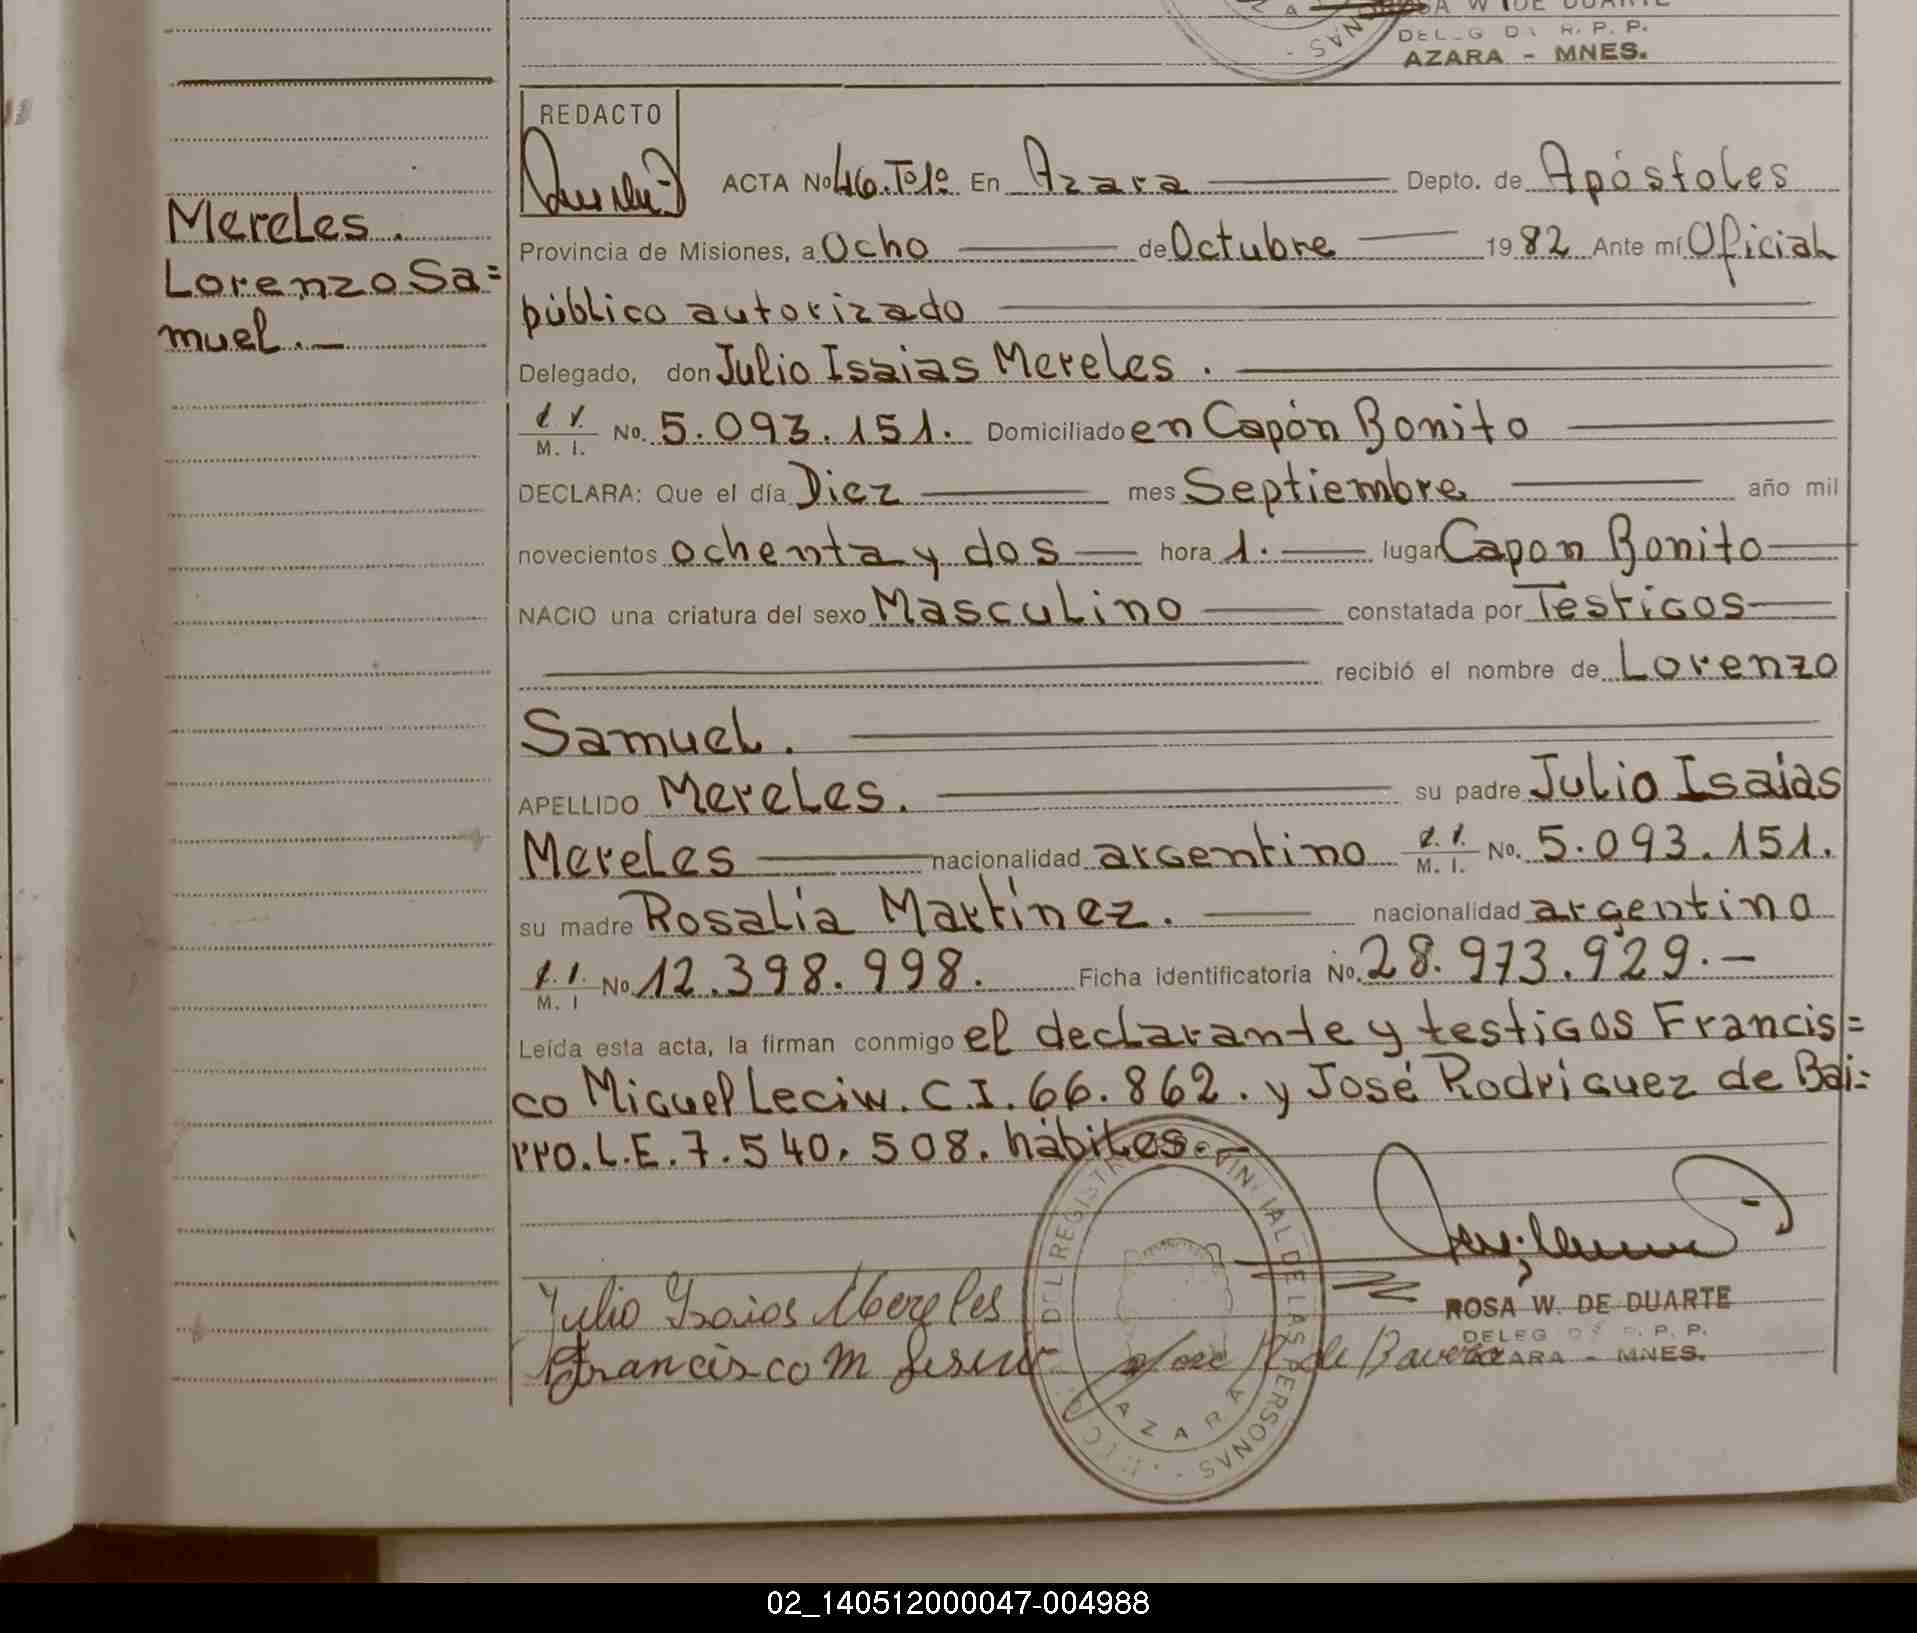 ROSA W DE DUARTE
DELEG DE R. P. P.
AZARA - MNES.
REDACTO
ACTA No 46. Tº1º En Azara Depto. de Apóstoles
Provincia de Misiones, a Ocho de Octubre 1982 Ante mí Oficial
público autorizado
Delegado, don Julio Isaias Mereles.
M. I. No. 5.093.151. Domiciliado en Capón Bonito
DECLARA: Que el día Diez mes Septiembre año mil
novecientos ochenta y dos hora 1. lugar Capon Bonito
NACIO una criatura del sexo Masculino constatada por Testigos
recibió el nombre de Lorenzo
Samuel.
APELLIDO Mereles. su padre Julio Isaias
Mereles nacionalidad argentino M. I. No. 5.093.151.
su madre Rosalia Martinez. nacionalidad argentino
M. I No. 12.398.998. Ficha identificatoria No. 28.973.929.-
Leída esta acta, la firman conmigo el declarante y testigos Francis=
co Miguel Leciw. C.I. 66.862. y José Rodriguez de Bai=
rro. L.E. 7.540.508. hábiles.-
Mereles.
Lorenzo Sa=
muel.-
Julio Isaias Mereles
Francisco M
Jose R de
DEL REGISTRO PROVINCIAL DE LAS PERSONAS
AZARA
ROSA W. DE DUARTE
DELEG DE R. P. P.
AZARA - MNES.
02_140512000047-004988